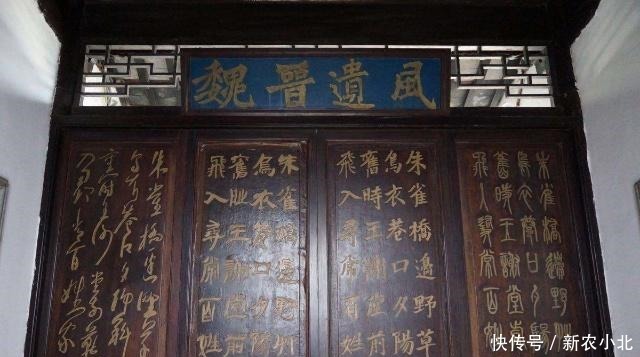 魏晉遺風
朱雀橋邊野
烏衣巷口夕陽
舊時王謝堂前
飛入尋常百姓
朱雀橋邊野草
烏衣巷口夕陽
舊時王謝堂前
飛入尋常百姓
朱雀橋邊野
烏衣巷口夕陽
舊時王謝堂前
飛入尋常百姓
朱雀橋邊野
烏衣巷口夕陽斜
舊時王謝堂前燕
飛入尋常百姓家
快传号 / 新农小北